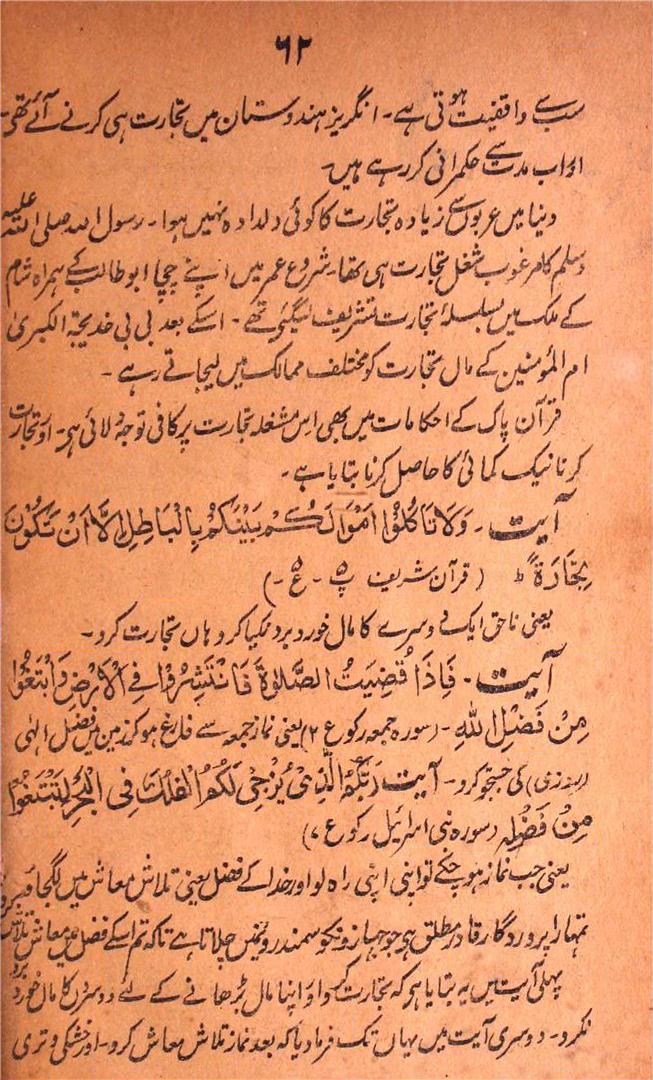 ۶۲
سب سے واقفیت ہوتی ہے۔ انگریز ہندوستان میں تجارت ہی کرنے آئے تھی۔
اور اب مدت سے حکمرانی کر رہے ہیں۔
دنیا میں عربوں سے زیادہ تجارت کا کوئی دلدادہ نہیں ہوا۔ رسول اللہ صلی اللہ علیہ
وسلم کا مرغوب شغل تجارت ہی تھا۔ شروع عمر میں اپنے چچا ابوطالب کے ہمراہ شام
کے ملک میں بسلسلۂ تجارت تشریف لیگئے تھے۔ اسکے بعد بی بی خدیجۃ الکبریٰ
ام المؤمنین کے مال تجارت کو مختلف ممالک میں لیجاتے رہے۔
قرآن پاک کے احکامات میں بھی اس مشغلہ تجارت پر کافی توجہ دلائی ہی۔ اور تجارت
کرنا نیک کمائی کا حاصل کرنا بتایا ہے۔
آیت۔ وَلَا تَاكُلُوْا اَمْوَالَكُمْ بَيْنَكُمْ بِالْبَاطِلِ اِلَّا اَنْ تَكُوْنَ
تِجَارَةً ط (قرآن شریف پ ۵ - ع ۵ -)
یعنی ناحق ایک دوسرے کا مال خورد برد نکیا کرو ہاں تجارت کرو۔
آیت۔ فَاِذَا قُضِيَتِ الصَّلٰوةُ فَانْتَشِرُوْا فِي الْاَرْضِ وَابْتَغُوْا
مِنْ فَضْلِ اللهِ۔ (سورہ جمعہ رکوع ۲) یعنی نماز جمعہ سے فارغ ہو کر زمین میں فضل الٰہی
(روزی) کی جستجو کرو۔ آیت رَبُّكُمُ الَّذِيْ يُزْجِيْ لَكُمُ الْفُلْكَ فِي الْبَحْرِ لِتَبْتَغُوْا
مِنْ فَضْلِهٖ (سورہ بنی اسرائیل رکوع ۷)
یعنی جب نماز ہو چکے تو اپنی اپنی راہ لو اور خدا کے فضل یعنی تلاش معاش میں لگجاؤ
تمہارا پروردگار قادر مطلق ہی جو جہازونکو سمندرونمیں چلاتا ہے تاکہ تم اسکے فضل یعنی معاش تلاش
پہلی آیت میں یہ بتایا ہی کہ تجارت کرو اور اپنا مال بڑھانے کے لئے دوسروں کا مال خورد برد
نکرو۔ دوسری آیت میں یہاں تک فرمادیا کہ بعد نماز تلاش معاش کرو۔ اور خشکی و تری